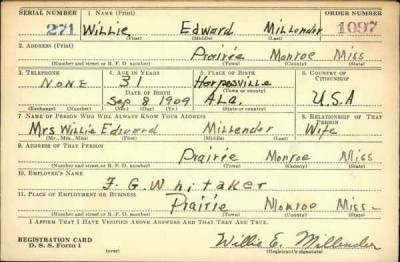 SERIAL NUMBER 1. NAME (Print) ORDER NUMBER
271 Willie Edward Millender 1097
(First) (Middle) (Last)
2. ADDRESS (Print)
Prairie Monroe Miss
(Number and street or R. F. D. number) (Town) (County) (State)
3. TELEPHONE 4. AGE IN YEARS 5. PLACE OF BIRTH 6. COUNTRY OF CITIZENSHIP
None 31 Harpersville
DATE OF BIRTH (Town or county)
Sep 8 1909 Ala. U.S.A
(Exchange) (Number) (Mo.) (Day) (Yr.) (State or country)
7. NAME OF PERSON WHO WILL ALWAYS KNOW YOUR ADDRESS 8. RELATIONSHIP OF THAT PERSON
Mrs Willie Edward Millender Wife
(Mr., Mrs., Miss) (First) (Middle) (Last)
9. ADDRESS OF THAT PERSON
Prairie Monroe Miss
(Number and street or R. F. D. number) (Town) (County) (State)
10. EMPLOYER'S NAME
F. G. Whitaker
11. PLACE OF EMPLOYMENT OR BUSINESS
Prairie Monroe Miss-
(Number and street or R. F. D. number) (Town) (County) (State)
I AFFIRM THAT I HAVE VERIFIED ABOVE ANSWERS AND THAT THEY ARE TRUE.
REGISTRATION CARD
D. S. S. Form 1 Willie E. Millender
(Registrant's signature)